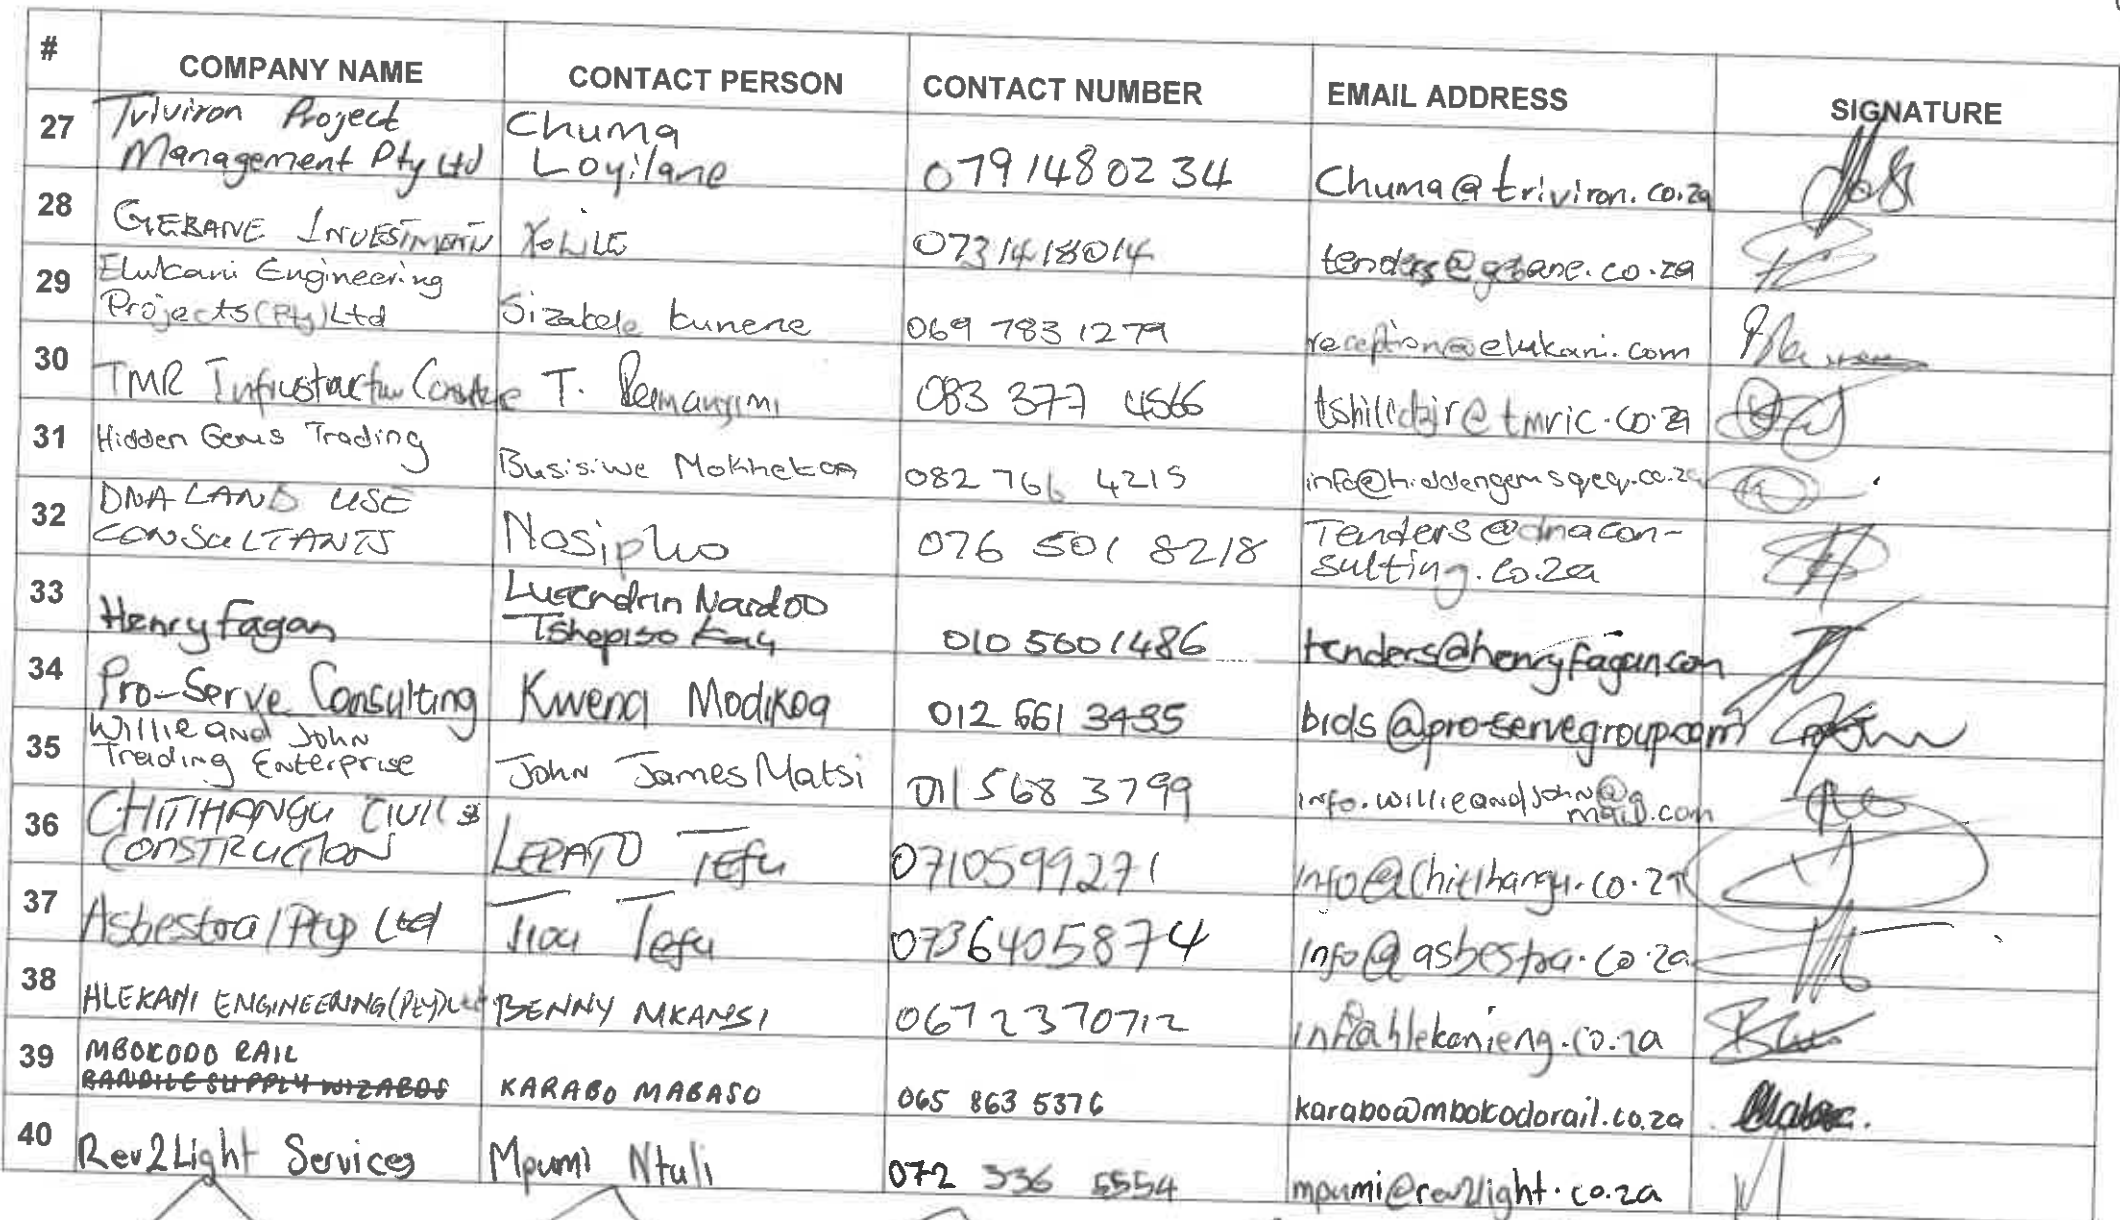 # COMPANY NAME CONTACT PERSON CONTACT NUMBER EMAIL ADDRESS SIGNATURE
27 Triviron Project Management Pty Ltd Chuma Loyilane 0791480234 Chuma@triviron.co.za
28 GEBANE INVESTMENTS XOLILE 0731418014 tenders@gebane.co.za
29 Elukani Engineering Projects (Pty) Ltd Sizakele kunene 069 783 1279 reception@elukani.com
30 TMR T. 083 377 4566 @tmric.co.za
31 Hidden Gems Trading Busisiwe 082 766 4215
32 DNA LAND USE CONSULTANTS Nosipho 076 501 8218 Tenders@dnacon-sulting.co.za
33 Henry fagan Naidoo Tshepiso 010 5601486 tenders@henryfagan.com
34 Pro-Serve Consulting Kwena Modikoa 012 661 3435 bids@pro-servegroup.com
35 Willie and John Trading Enterprise John James Matsi 011 568 3799 info.willieandjohn@gmail.com
36 CHITIHANGU CIVILS CONSTRUCTION LERATO Tefu 0710599271
37 Asbestoa/Pty Ltd Tefu 0736405874 Info@asbestoa.co.za
38 HLEKANI ENGINEERING (Pty) Ltd BENNY MKANSI 0672370712 info@hlekanieng.co.za
39 MBOKODO RAIL KARABO MABASO 065 863 5376 karabo@mbokodorail.co.za
40 Rev2Light Services Mpumi Ntuli 072 336 5554 mpumi@rev2light.co.za